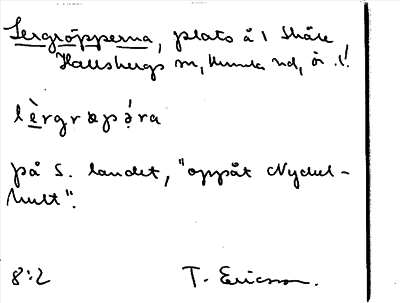 Lergröpperna, plats å 1 Skåle
Hallsbergs sn, Kumla hd, ör .l!
lèrgrœpə́ra
på S. landet, "oppåt Nyckel-
hult".
8:2 T. Ericsson.